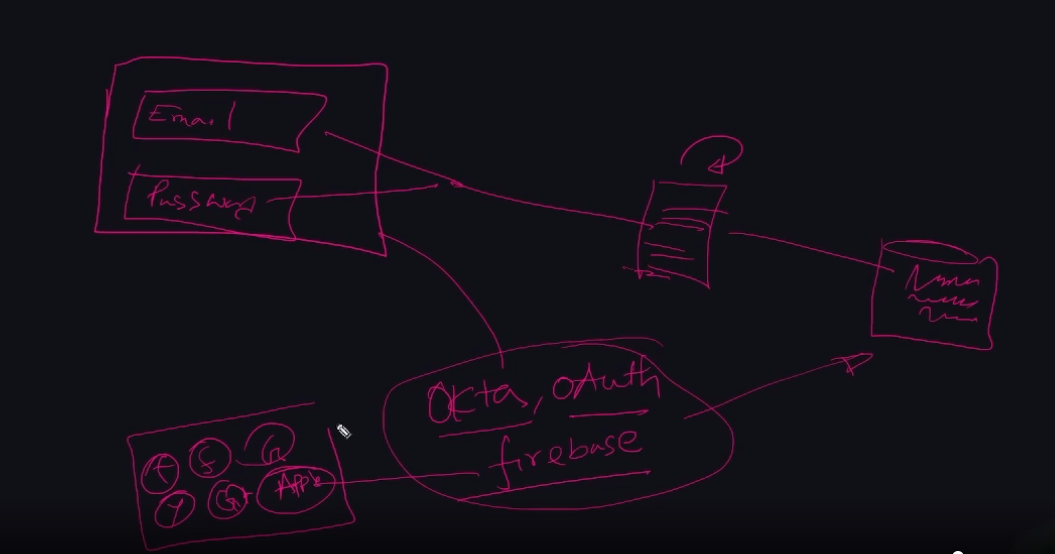 Email
Password
Okta, OAuth
firebase
f
G
Y
G+
Apple